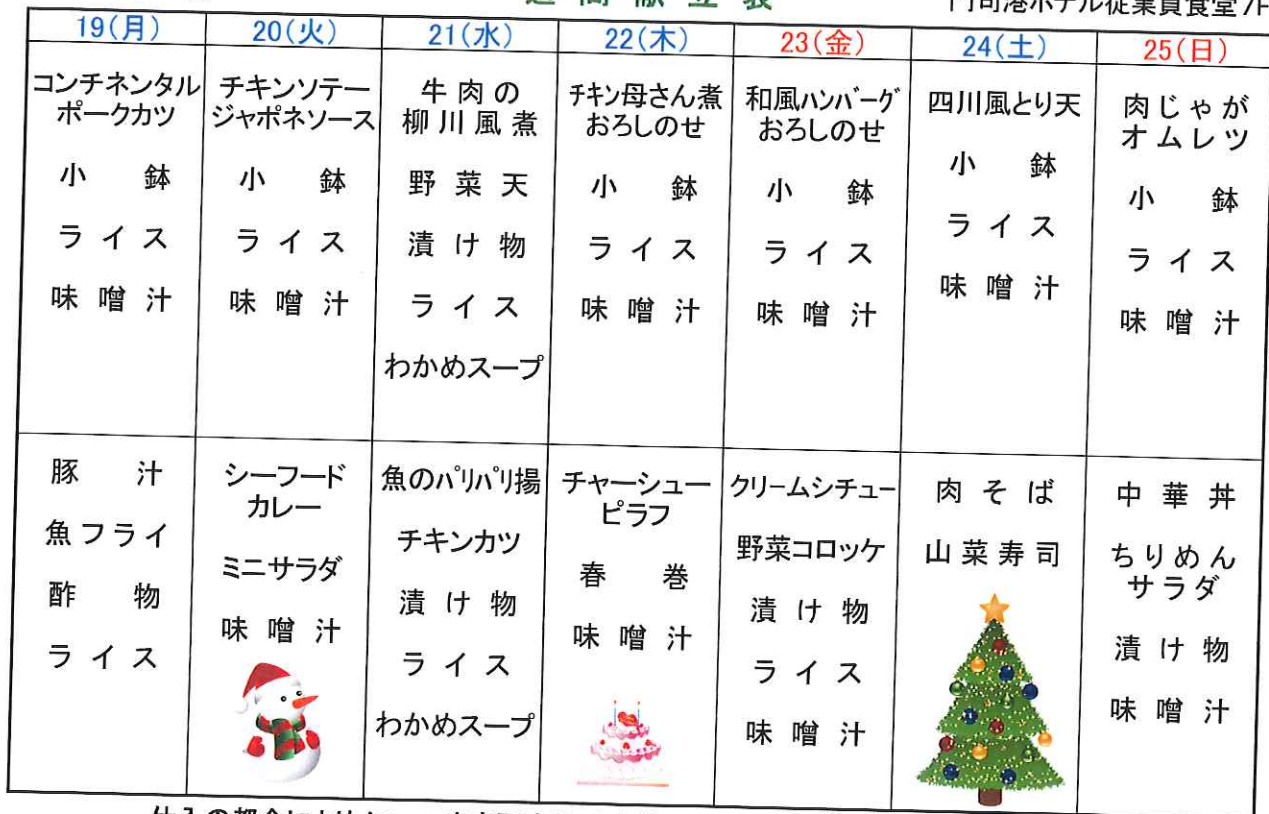 週間献立表
門司港ホテル従業員食堂
19(月) 20(火) 21(水) 22(木) 23(金) 24(土) 25(日)
コンチネンタル
ポークカツ
小鉢
ライス
味噌汁
チキンソテー
ジャポネソース
小鉢
ライス
味噌汁
牛肉の
柳川風煮
野菜天
漬け物
ライス
わかめスープ
チキン母さん煮
おろしのせ
小鉢
ライス
味噌汁
和風ハンバーグ
おろしのせ
小鉢
ライス
味噌汁
四川風とり天
小鉢
ライス
味噌汁
肉じゃが
オムレツ
小鉢
ライス
味噌汁
豚汁
魚フライ
酢物
ライス
シーフード
カレー
ミニサラダ
味噌汁
魚のパリパリ揚
チキンカツ
漬け物
ライス
わかめスープ
チャーシュー
ピラフ
春巻
味噌汁
クリームシチュー
野菜コロッケ
漬け物
ライス
味噌汁
肉そば
山菜寿司
中華丼
ちりめん
サラダ
漬け物
味噌汁